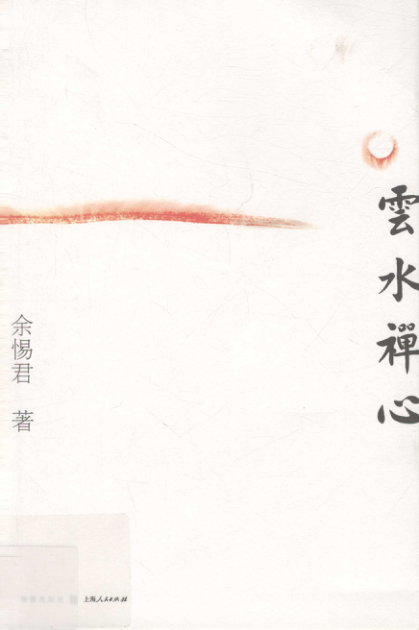 雲水禪心
余惕君 著
上海人民出版社